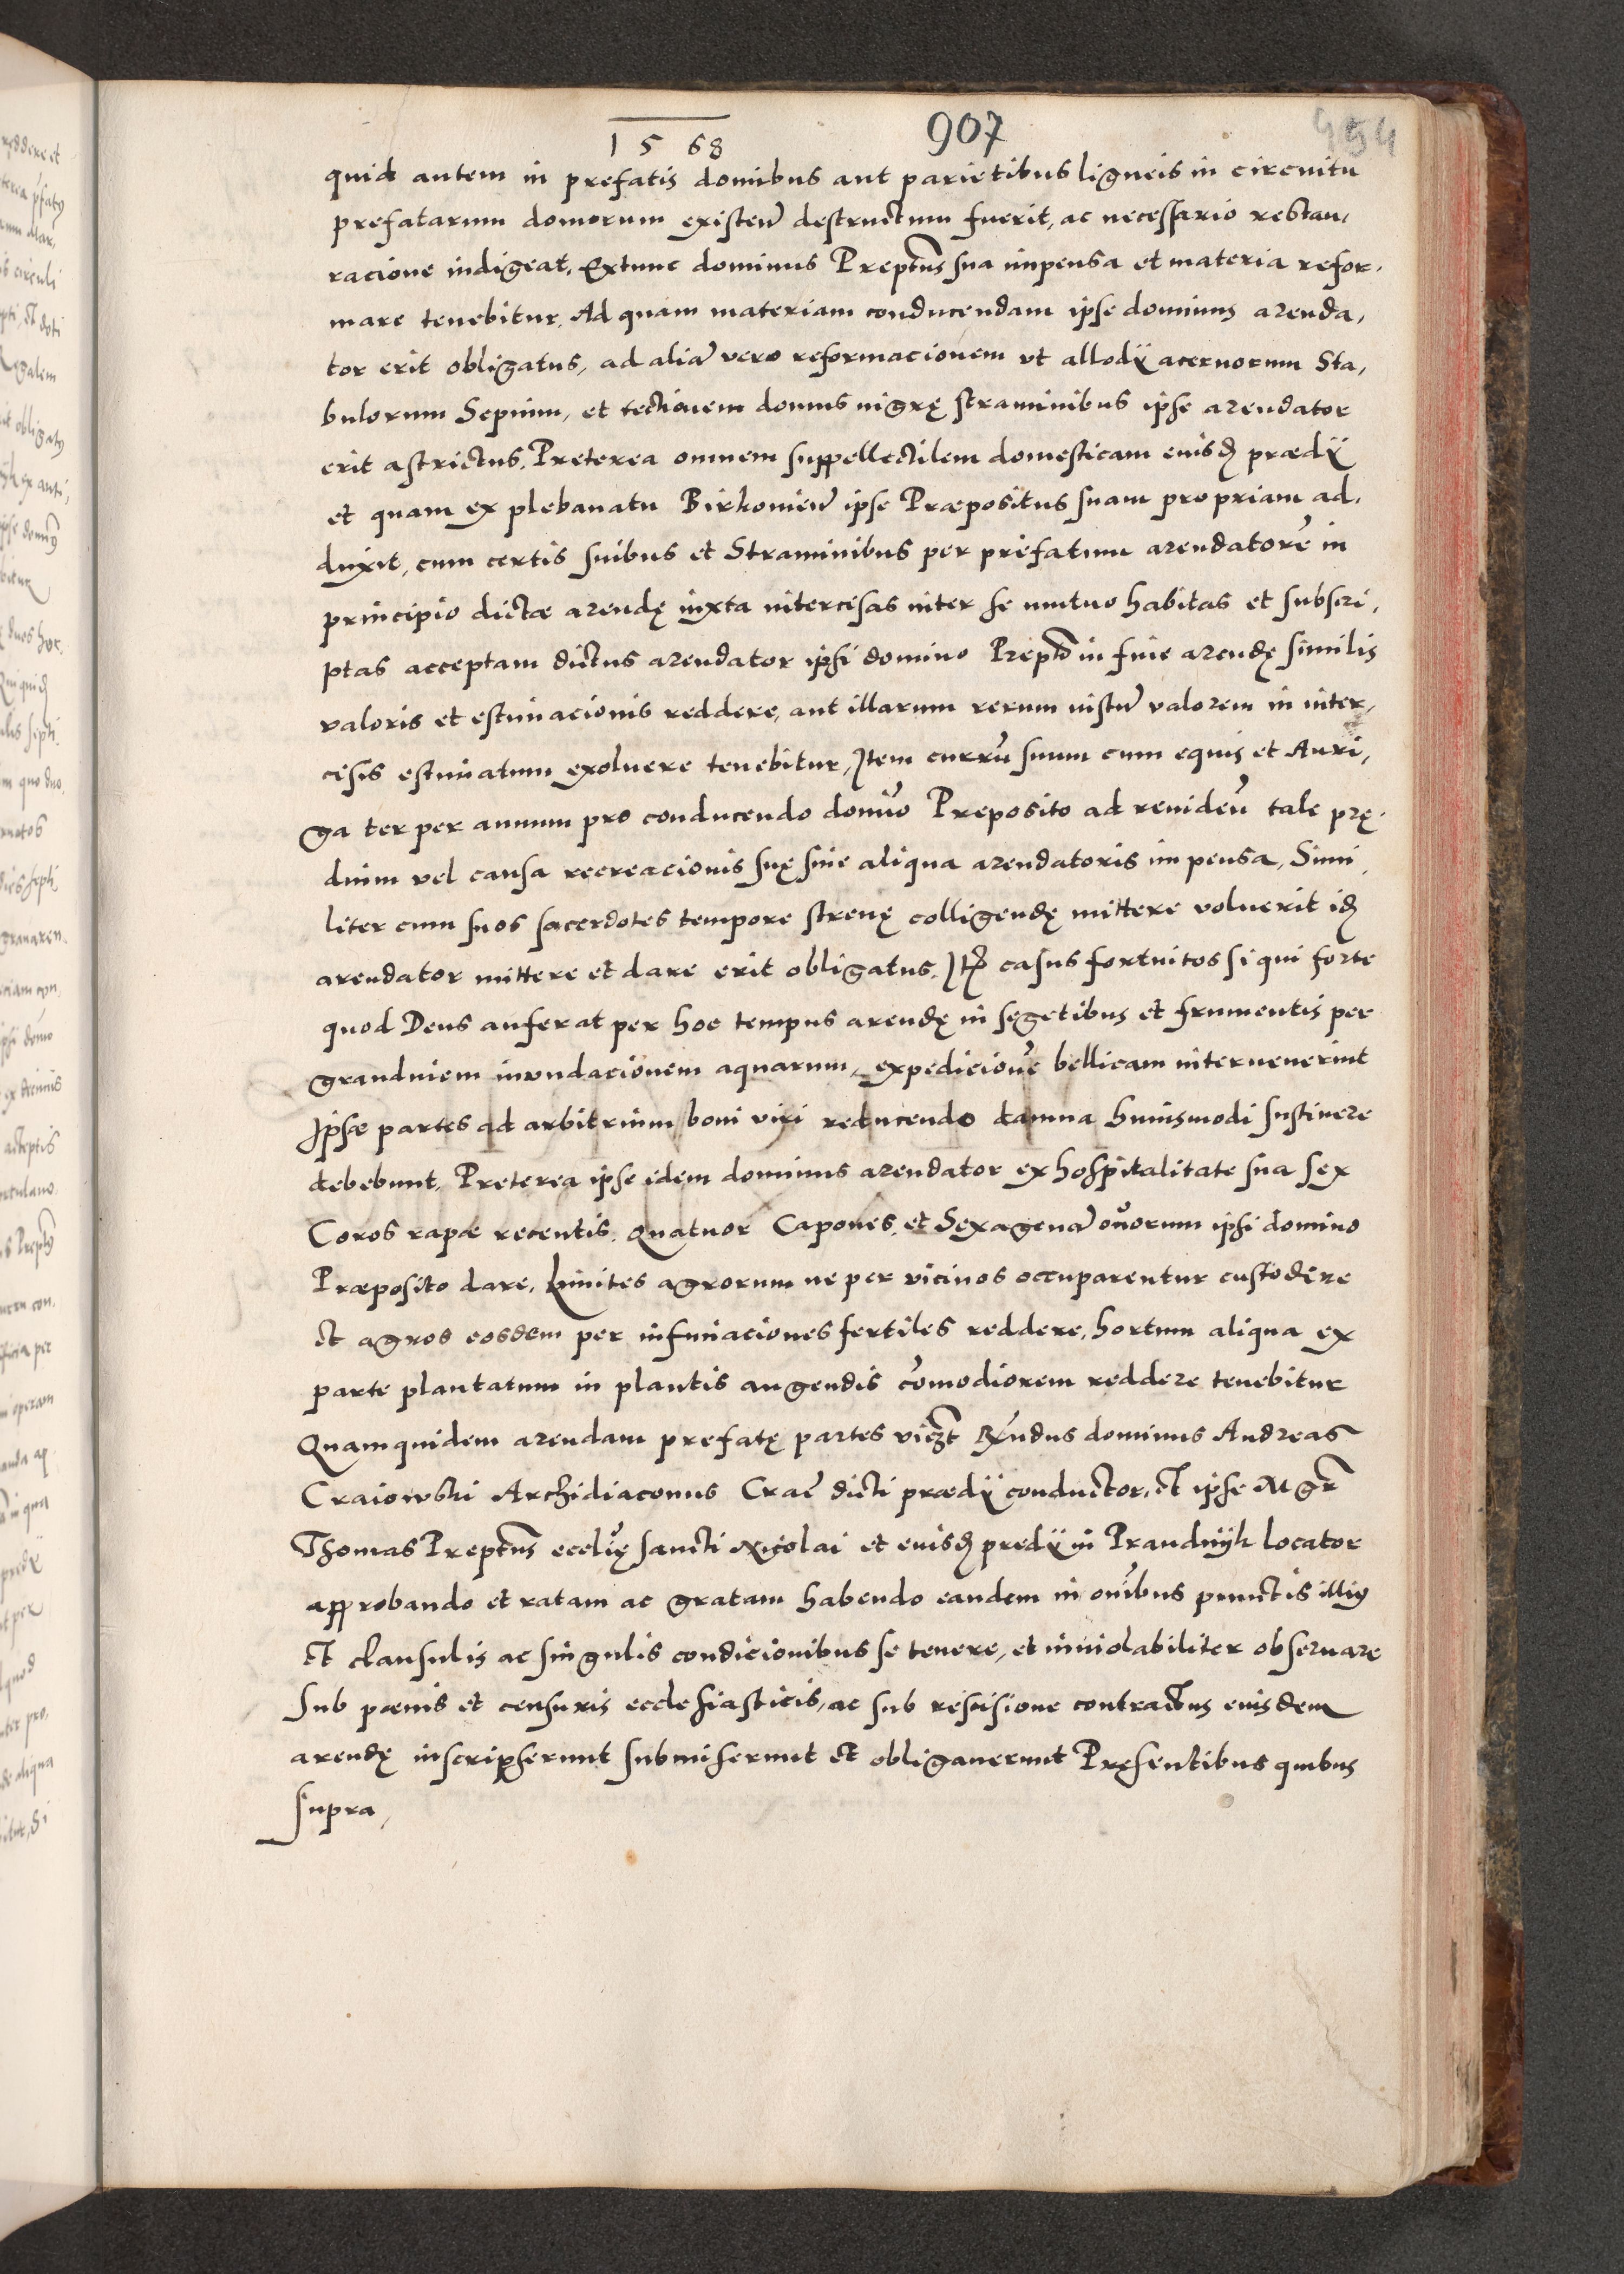 1568
907
454
quid autem in prefatis domibus aut parietibus ligneis in circuitu
prefatarum domorum existen̄ destructum fuerit, ac necessario restau,
racione indigeat, Extunc dominus Preptus sua impensa et materia refor,
mare tenebitur, Ad quam materiam conducendam ipse dominus arenda,
tor erit obligatus, ad aliā vero reformacionem vt allodÿ acervorum Sta,
bulorum Sepium, et tectionem domus nigrę straminibus ipse arendator
erit astrictus, Preterea omnem suppellectilem domesticam euisd prædÿ
et quam ex plebanatu Birkowien̄ ipse Præpositus suam propriam ad,
duxit, cum certis suibus et Straminibus per prefatum arendatorē in
principio dictæ arendę iuxta intercisas inter se mutuo habitas et subscri,
ptas acceptam dictus arendator ipsi domino Prepto in fine arendę similis
valoris et estimacionis reddere, aut illarum rerum iustū valorem in inter,
cisis estimatum exoluere tenebitur, Item currū suum cum equis et Auri,
ga ter per annum pro conducendo domῑo Preposito ad reuidēn tale prę,
dium vel causa recreacionis suę sine aliqua arendatoris impensa, Simi,
liter cum suos sacerdotes tempore strenę colligendę mittere voluerit id
arendator mittere et dare erit obligatus, Itē casus fortuitos si qui forte
quod Deus auferat per hoc tempus arendę in segetibus et frumentis per
grandniem inundacionem aquarum, expedicionē bellicam interuenerint
Ipsæ partes ad arbitrium boni viri reducendo damna huiusmodi sustinere
debebunt, Preterea ipse idem dominus arendator ex hospitalitate sua sex
Coros rapæ recentis, Quatuor Capones, et Sexagenā ouorum ipsi domino
Præposito dare, Limites agrorum ne per vicinos occuparentur custodire
et agros eosdem per infimaciones fertiles reddere, hortum aliqua ex
parte plantatum in plantis augendis cōmodiorem reddere tenebitur
Quamquidem arendam prefatę partes vicꝫt Rn̄dus dominus Andreas
Craiowski Archidiaconus Crac̄ dicti prædÿ conductor, et ipse Mgr̄
Thomas Preptus ecclīę sancti Nicolai et euisd predÿ in Prandnÿk locator
approbando et ratam ac gratam habendo eandem in om̄ibus punctis illiꝰ
et clausulis ac singulis condicionibus se tenere, et inuiolabiliter obseruare
sub pœnis et censuris ecclesiasticis, ac sub rescisione contractus euisdem
arendę inscripserunt submiserunt et obligauerunt Pręsentibus quibus
supra,